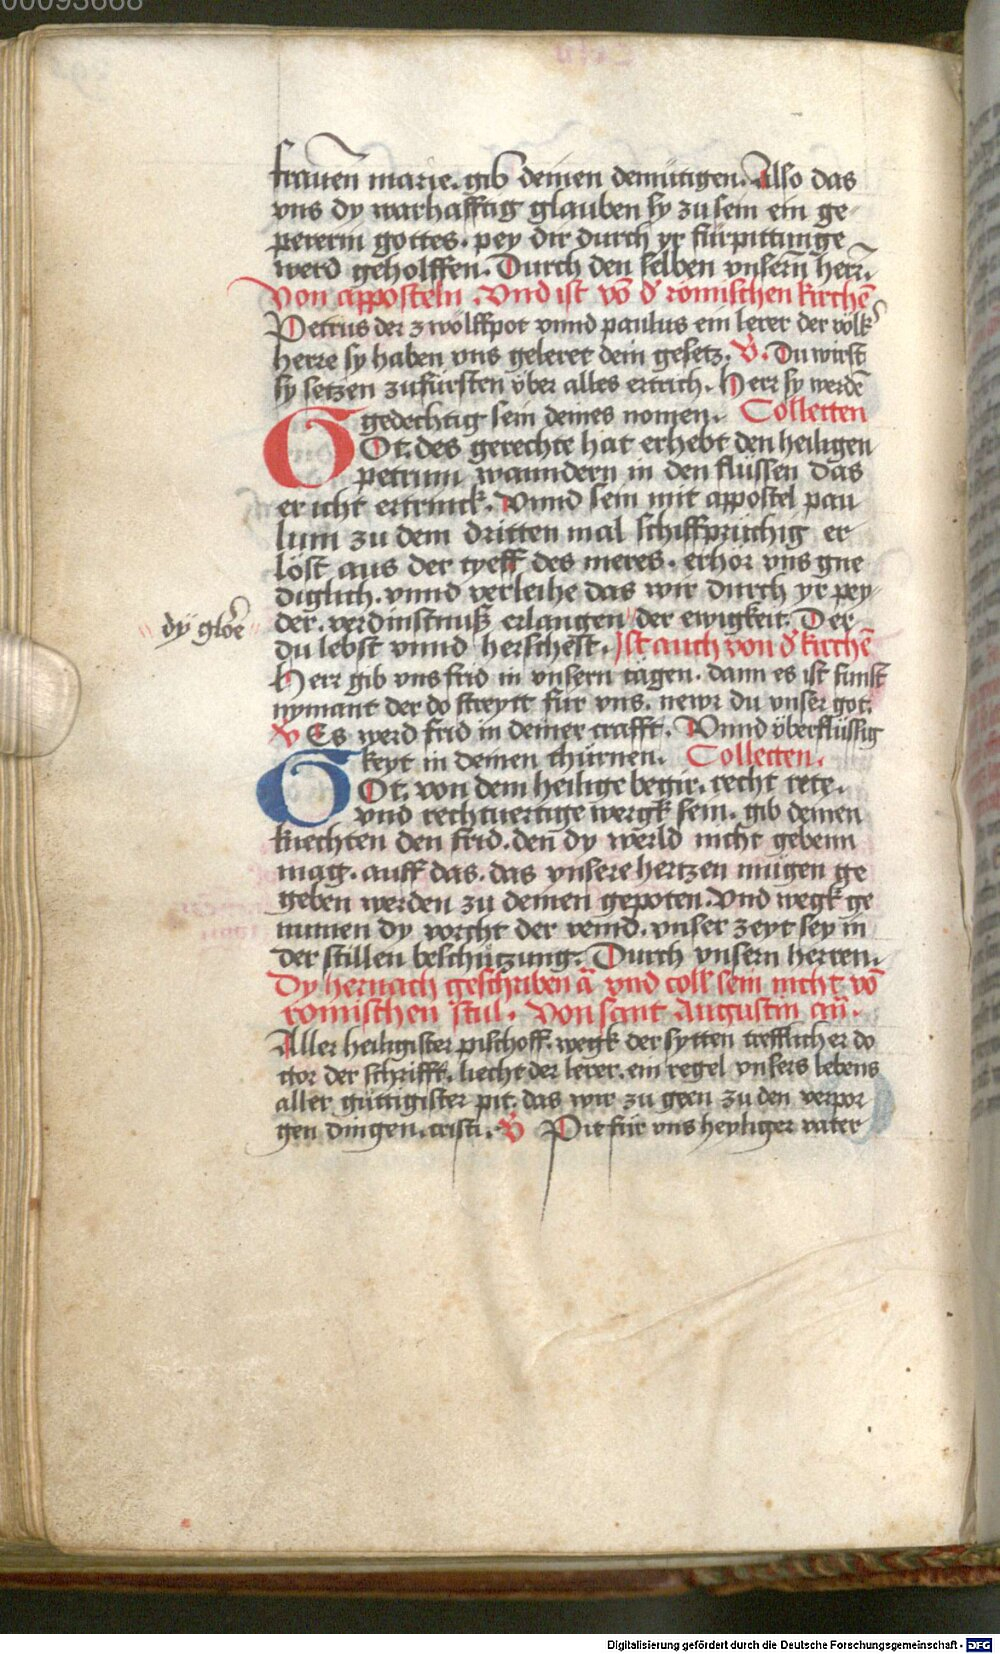 00093668
frauen̄ marie. gib deinen demütigen. Also das
vns dy warhafftig glauben sy zu sein ein ge
pererin gottes. pey dir durch yr fürpittunge
werd geholffen. Durch den selben vnsern̄ herr̄.
Von apposteln. Vnd ist vō d' römischen kirchē
Petrus der zwölffpot vnnd paulus ein lerer der völk'
herre sy haben vns geleret dein gesetz. V. Du wirst
sy setzen zu fürsten über alles ertrich. Herr sy werdē
gedechtig sein deines nomen. Collecten
GOt. des gerechte hat erhebt den heiligen
petrum waundern in den flüssen das
er icht ertrinck. Vnnd sein mit appostel pau
lum zu dem dritten mal schiffprüchig er
löst aus der tyeff des meres. erhör vns gne
diglich. vnnd verleihe das wir durch yr pey
der. verdinstnuß erlangen der ewigkeit. Der
dy glōe
du lebst vnnd herschest. Ist auch von d' kirchē
Herr gib vns frid in vnsern tagen. dann es ist sunst
nymant der do streytt für vns. newr du vnser got.
V Es werd frid in deiner crafft. Vnnd überflüssig
keyt in deinen thürnen. Collecten.
GOt. von dem heilige begir. recht rete.
vnd rechtuertige wergk sein. gib deinen
knechten den frid. den dy werld nicht gebenn
mag. auff das. das vnsere hertzen mügen ge
geben werden zu deinen gepoten. Vnd wegk ge
numen dy vorcht der veind. vnser zeyt sey in
der stillen beschützung. Durch vnsern herren.
Dy hernach geschriben ā vnd coll' sein nicht vō
römischen stul. Von sant Augustin an̄.
Aller heiligister pischoff. wegk der sytten trefflicher do
ctor der schrifft. liecht der lerer. ein regel vnsers lebens
aller güttigister pit. das wir zu geen zu den verpor
gen dingen. cristi. V Pit für vns heyliger vater
Digitalisierung gefördert durch die Deutsche Forschungsgemeinschaft - DFG